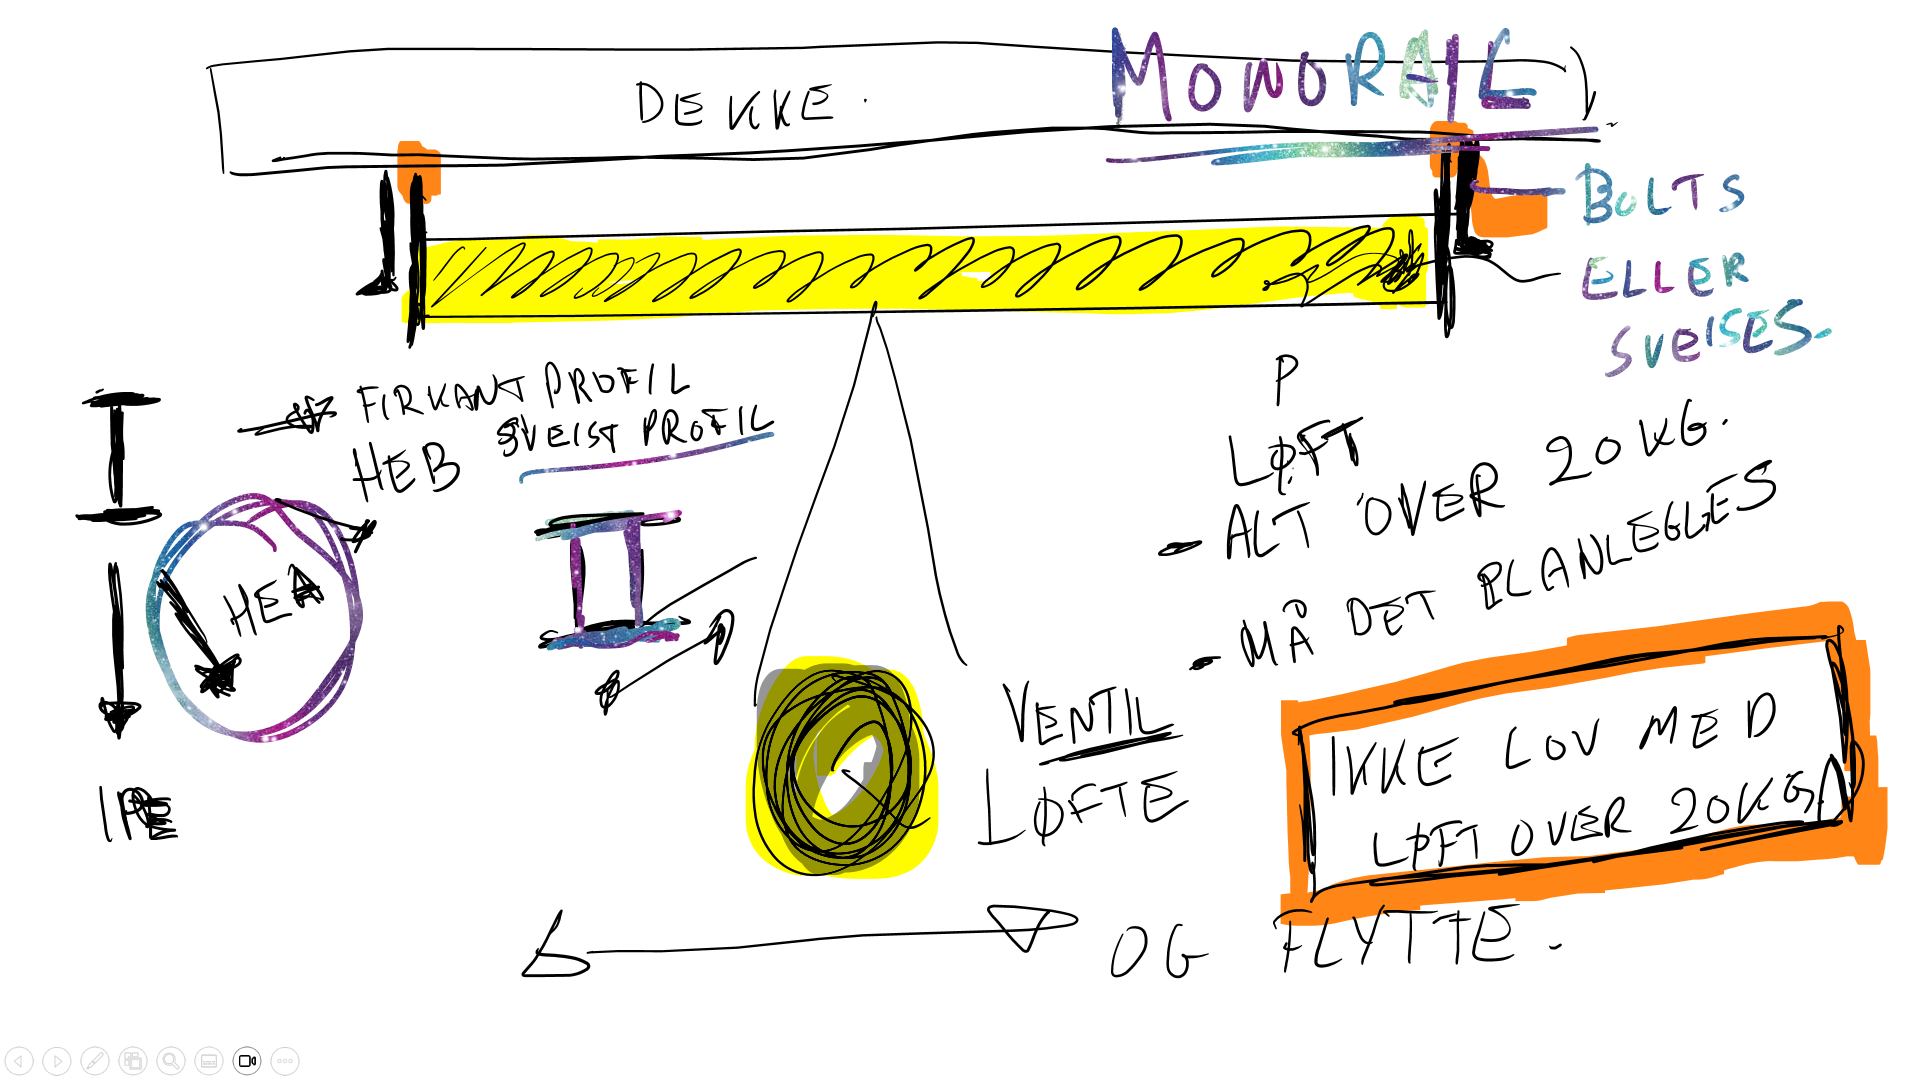 MONORAIL
DEKKE.
BOLTS
ELLER
SVEISES.
FIRKANT PROFIL
HEB SVEIST PROFIL
HEA
IPE
P
LØFT
- ALT OVER 20 KG.
- MÅ DET PLANLEGGES
VENTIL
LØFTE
IKKE LOV MED
LØFT OVER 20KG.
OG FLYTTE.